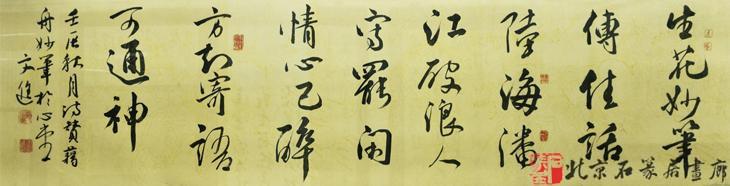 生花妙筆
傳佳話
陸海潘
江破浪人
寫罷閑
情心已醉
方知寄語
可通神
壬辰秋月詩贊藉
舟妙筆於心堂
北京石篆居畫廊